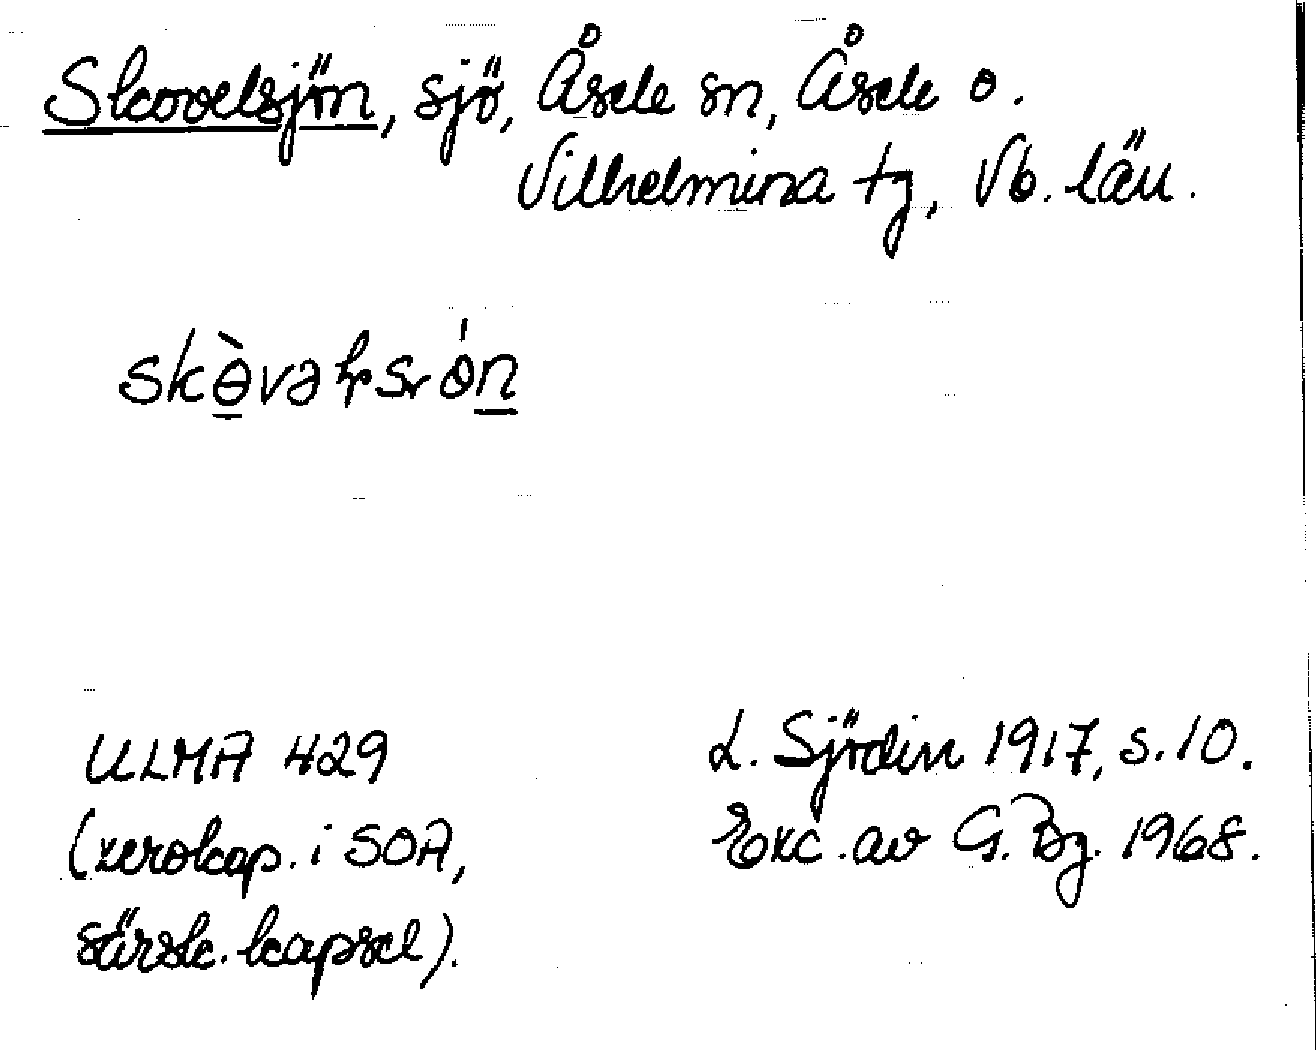 Skovelsjön, sjö, Åsele sn, Åsele o.
Vilhelmina tg, Vb. län.
ULMA 429
(xerokop. i SOA,
särsk. kapsel).
L. Sjödin 1917, s. 10.
Exc. av G. Bg. 1968.